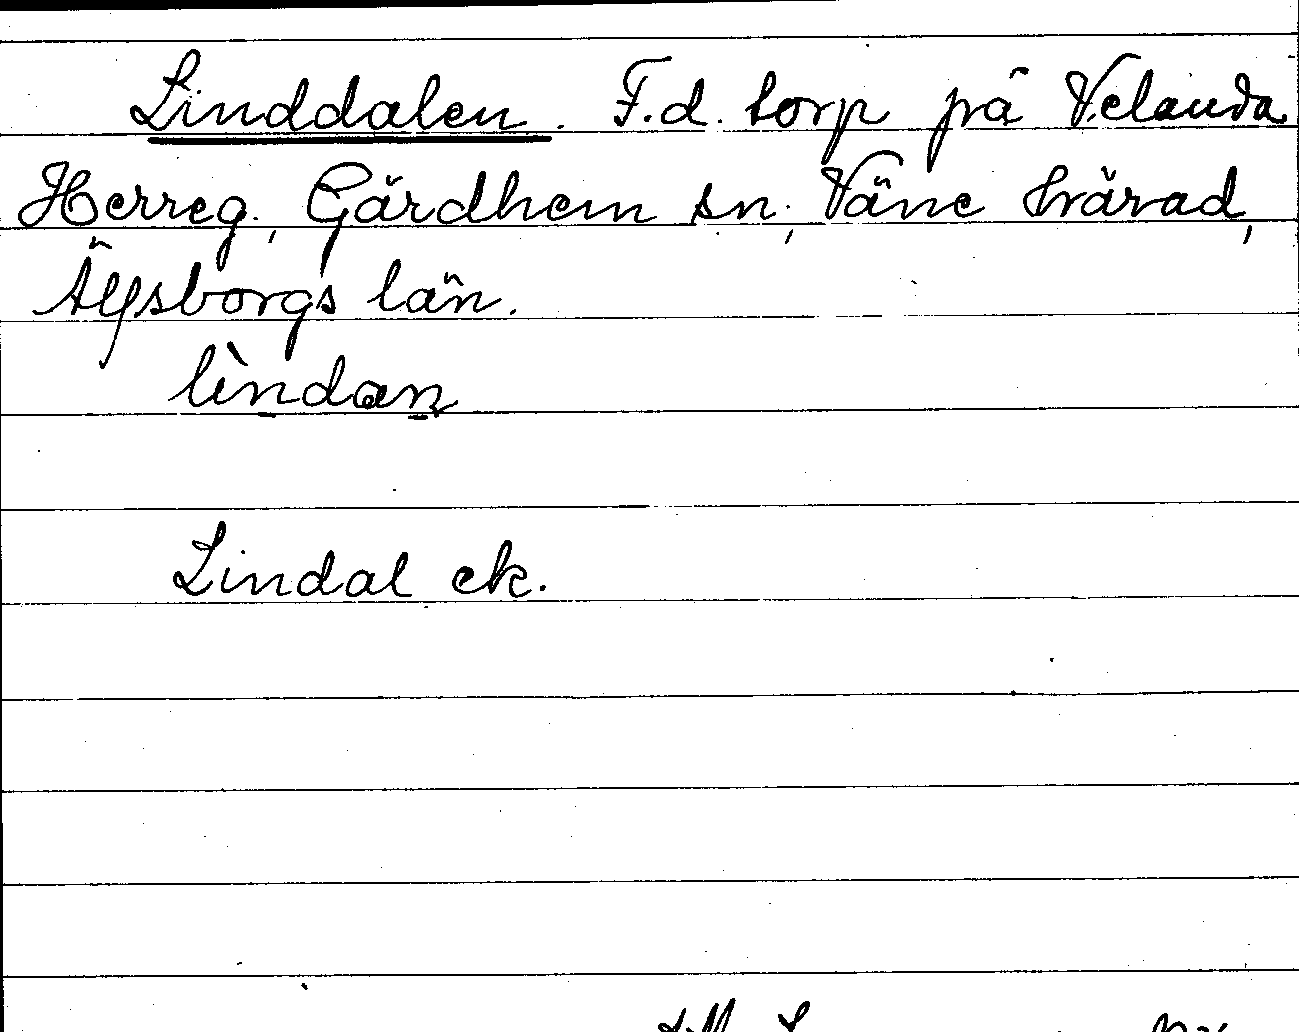 Linddalen. F.d. torp på Velanda
Herreg., Gärdhem sn., Väne härad,
Älfsborgs län.
lìndan
Lindal ek.